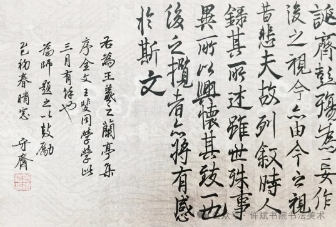 誕齊彭殤為妄作
後之視今亦由今之視
昔悲夫故列敘時人
錄其所述雖世殊事
異所以興懷其致一也
後之攬者亦將有感
於斯文
右為王羲之蘭亭集
序全文王斐同學學此
三月有餘也
為師題之以鼓勵
初春晴窓 守齋
许斌书院书法美术